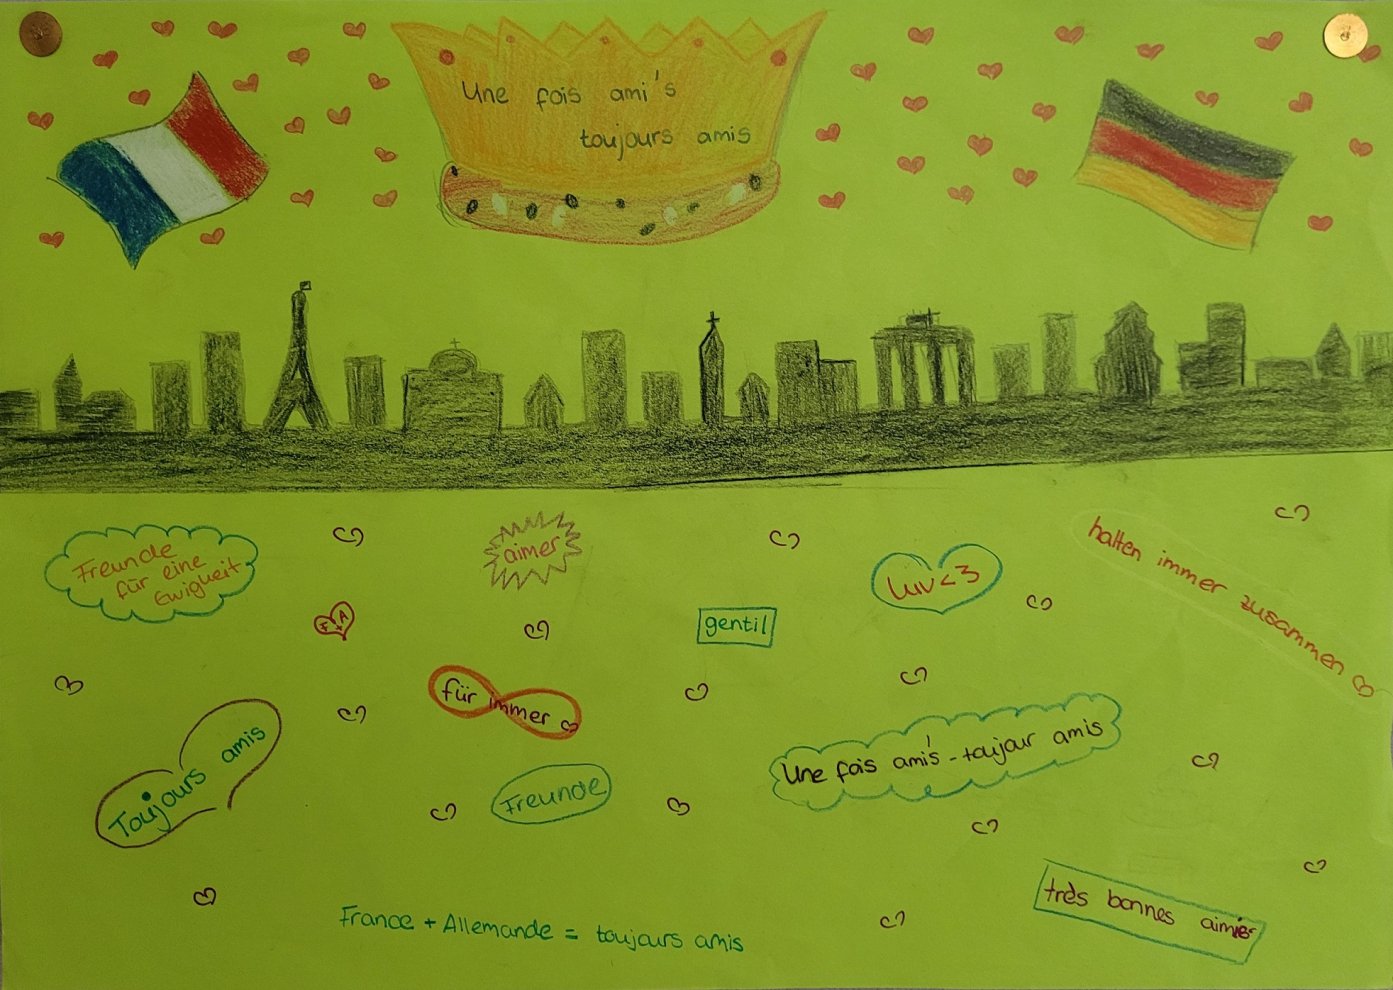 Une fois ami's
toujours amis
Freunde
für eine
Ewigkeit
aimer
luv<3
halten immer zusammen
F+A
gentil
für immer
Toujours amis
Freunde
Une fois ami's - toujour amis
très bonnes aimies
France + Allemande = toujours amis